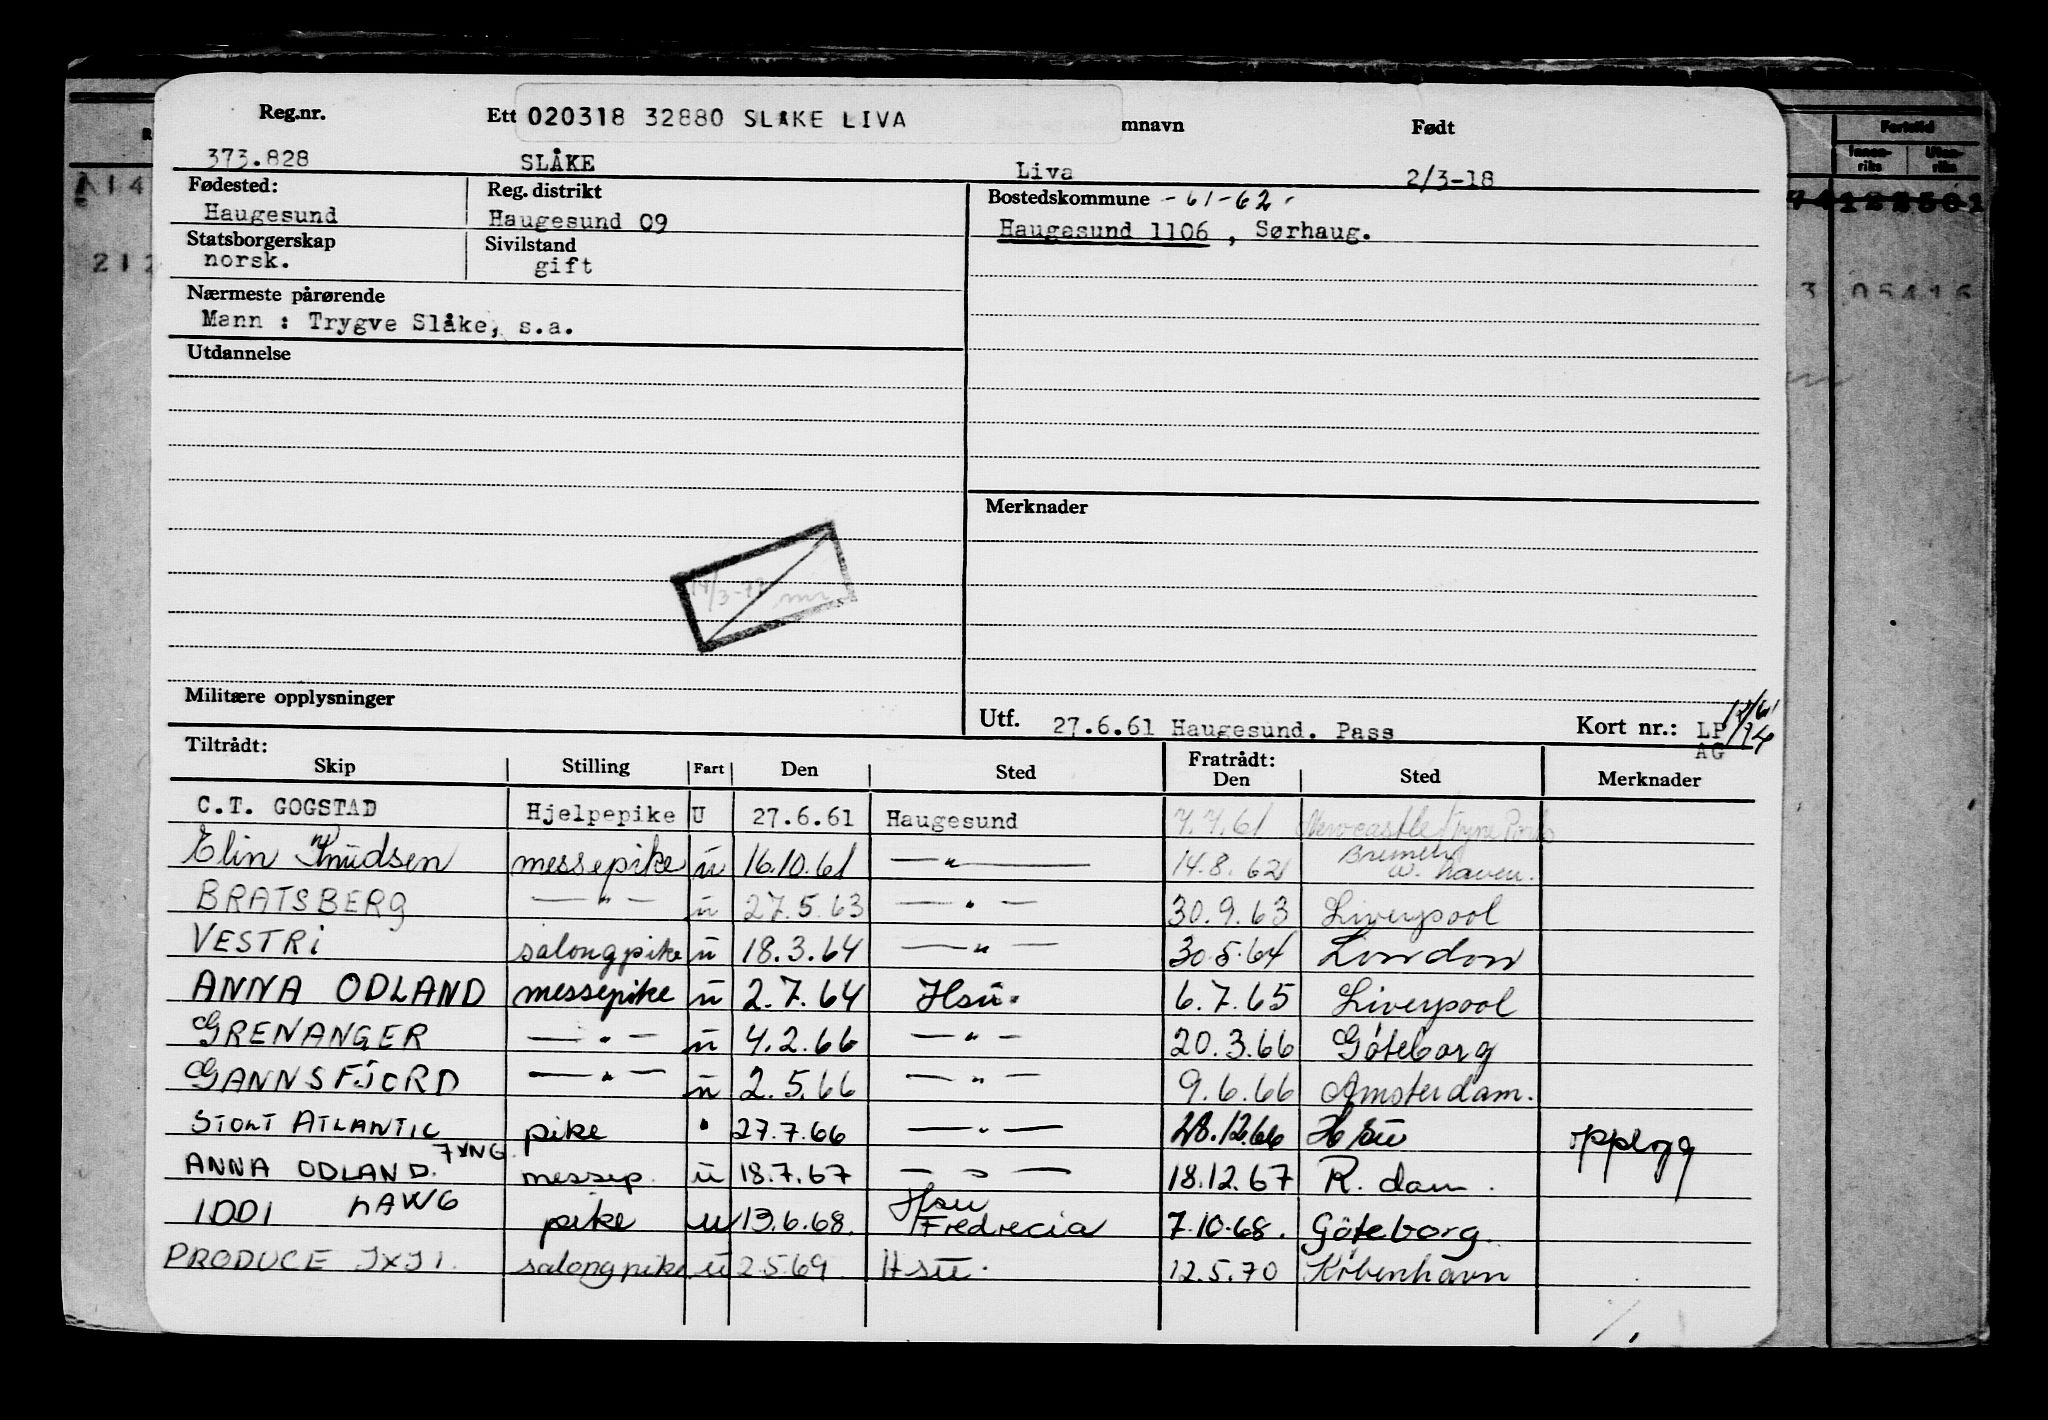 Reg.nr. Ett 020318 32880 SLÅKE LIVA mnavn Født
373.828 SLÅKE Liva 2/3-18
Fødested: Reg. distrikt Bostedskommune -61-62-
Haugesund Haugesund 09 Haugesund 1106, Sørhaug.
Statsborgerskap Sivilstand
norsk. gift
Nærmeste pårørende
Mann : Trygve Slåke, s.a.
Utdannelse
Merknader
Militære opplysninger
Utf. 27.6.61 Haugesund. Pass Kort nr.: LP
AG
Tiltrådt: Fratrådt:
Skip Stilling Fart Den Sted Den Sted Merknader
C.T. GOGSTAD Hjelpepike U 27.6.61 Haugesund 7.7.61 Newcastle Tyne Ports
Elin Knudsen messepike u 16.10.61 — " — 14.8.62 Bremen
w. haven.
BRATSBERG — " — u 27.5.63 — " — 30.9.63 Liverpool
VESTRI salongpike u 18.3.64 — " — 30.5.64 London
ANNA ODLAND messepike u 2.7.64 Hsu. 6.7.65 Liverpool
GRENANGER — " — u 4.2.66 — " — 20.3.66 Göteborg
GANNSFJORD — " — u 2.5.66 — " — 9.6.66 Amsterdam.
STOLT ATLANTIC pike " 27.7.66 — " — 28.12.66 Hsu opplegg
ANNA ODLAND. messep. u 18.7.67 — " — 18.12.67 R. dam.
IDDI LAWG pike u 13.6.68. Hsu
Fredrecia 7.10.68. Göteborg.
PRODUCE JXJI. salongpike u 2.5.69 Hsu. 12.5.70 København